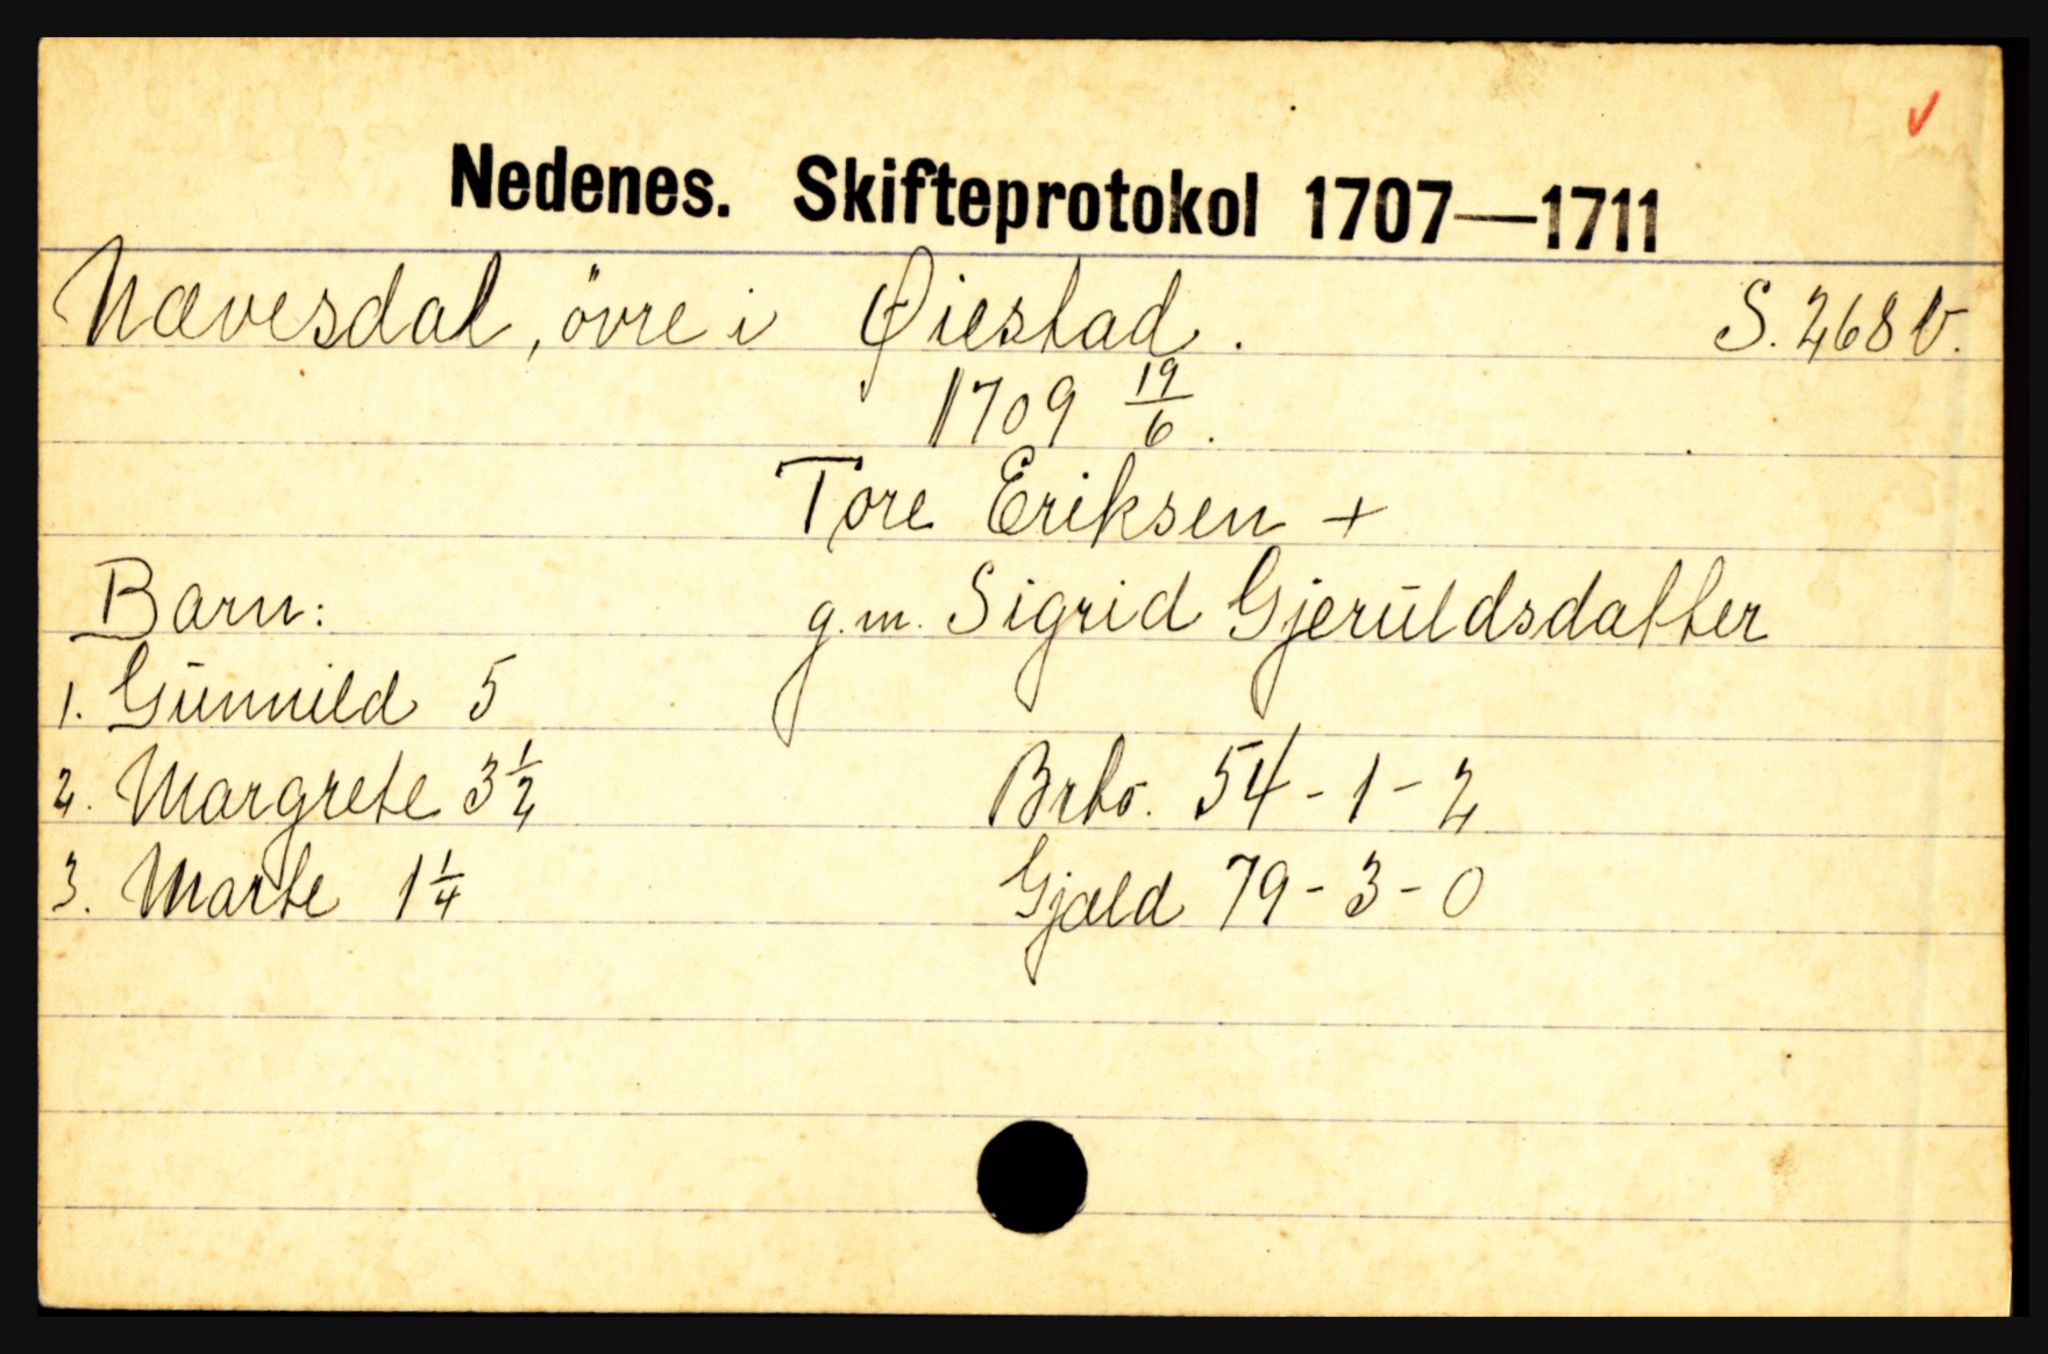 Nedenes. Skifteprotokol 1707—1711
Nævesdal, övre i Øiestad. S. 268 b.
1709 19/6.
Tore Eriksen +
Barn: g.m. Sigrid Gjeruldsdatter
1. Gunnild 5
2. Margrete 3 1/2 Brto. 54 - 1 - 2
3. Marte 1 1/4 Gjæld 79 - 3 - 0